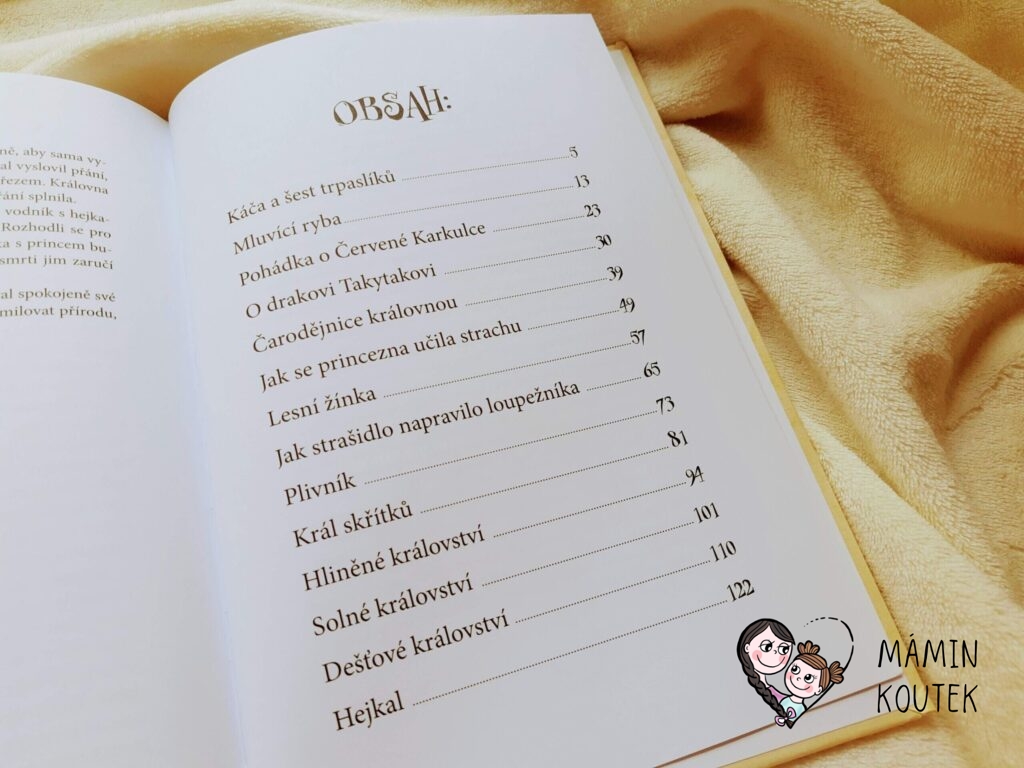 ně, aby sama vy-
al vyslovil přání,
řezem. Královna
ání splnila.
vodník s hejka-
Rozhodli se pro
ka s princem bu-
smrti jim zaručí
al spokojeně své
milovat přírodu,
OBSAH:
Káča a šest trpaslíků 5
Mluvící ryba 13
Pohádka o Červené Karkulce 23
O drakovi Takytakovi 30
Čarodějnice královnou 39
Jak se princezna učila strachu 49
Lesní žínka 57
Jak strašidlo napravilo loupežníka 65
Plivník 73
Král skřítků 81
Hliněné království 94
Solné království 101
Dešťové království 110
Hejkal 122
MÁMIN
KOUTEK